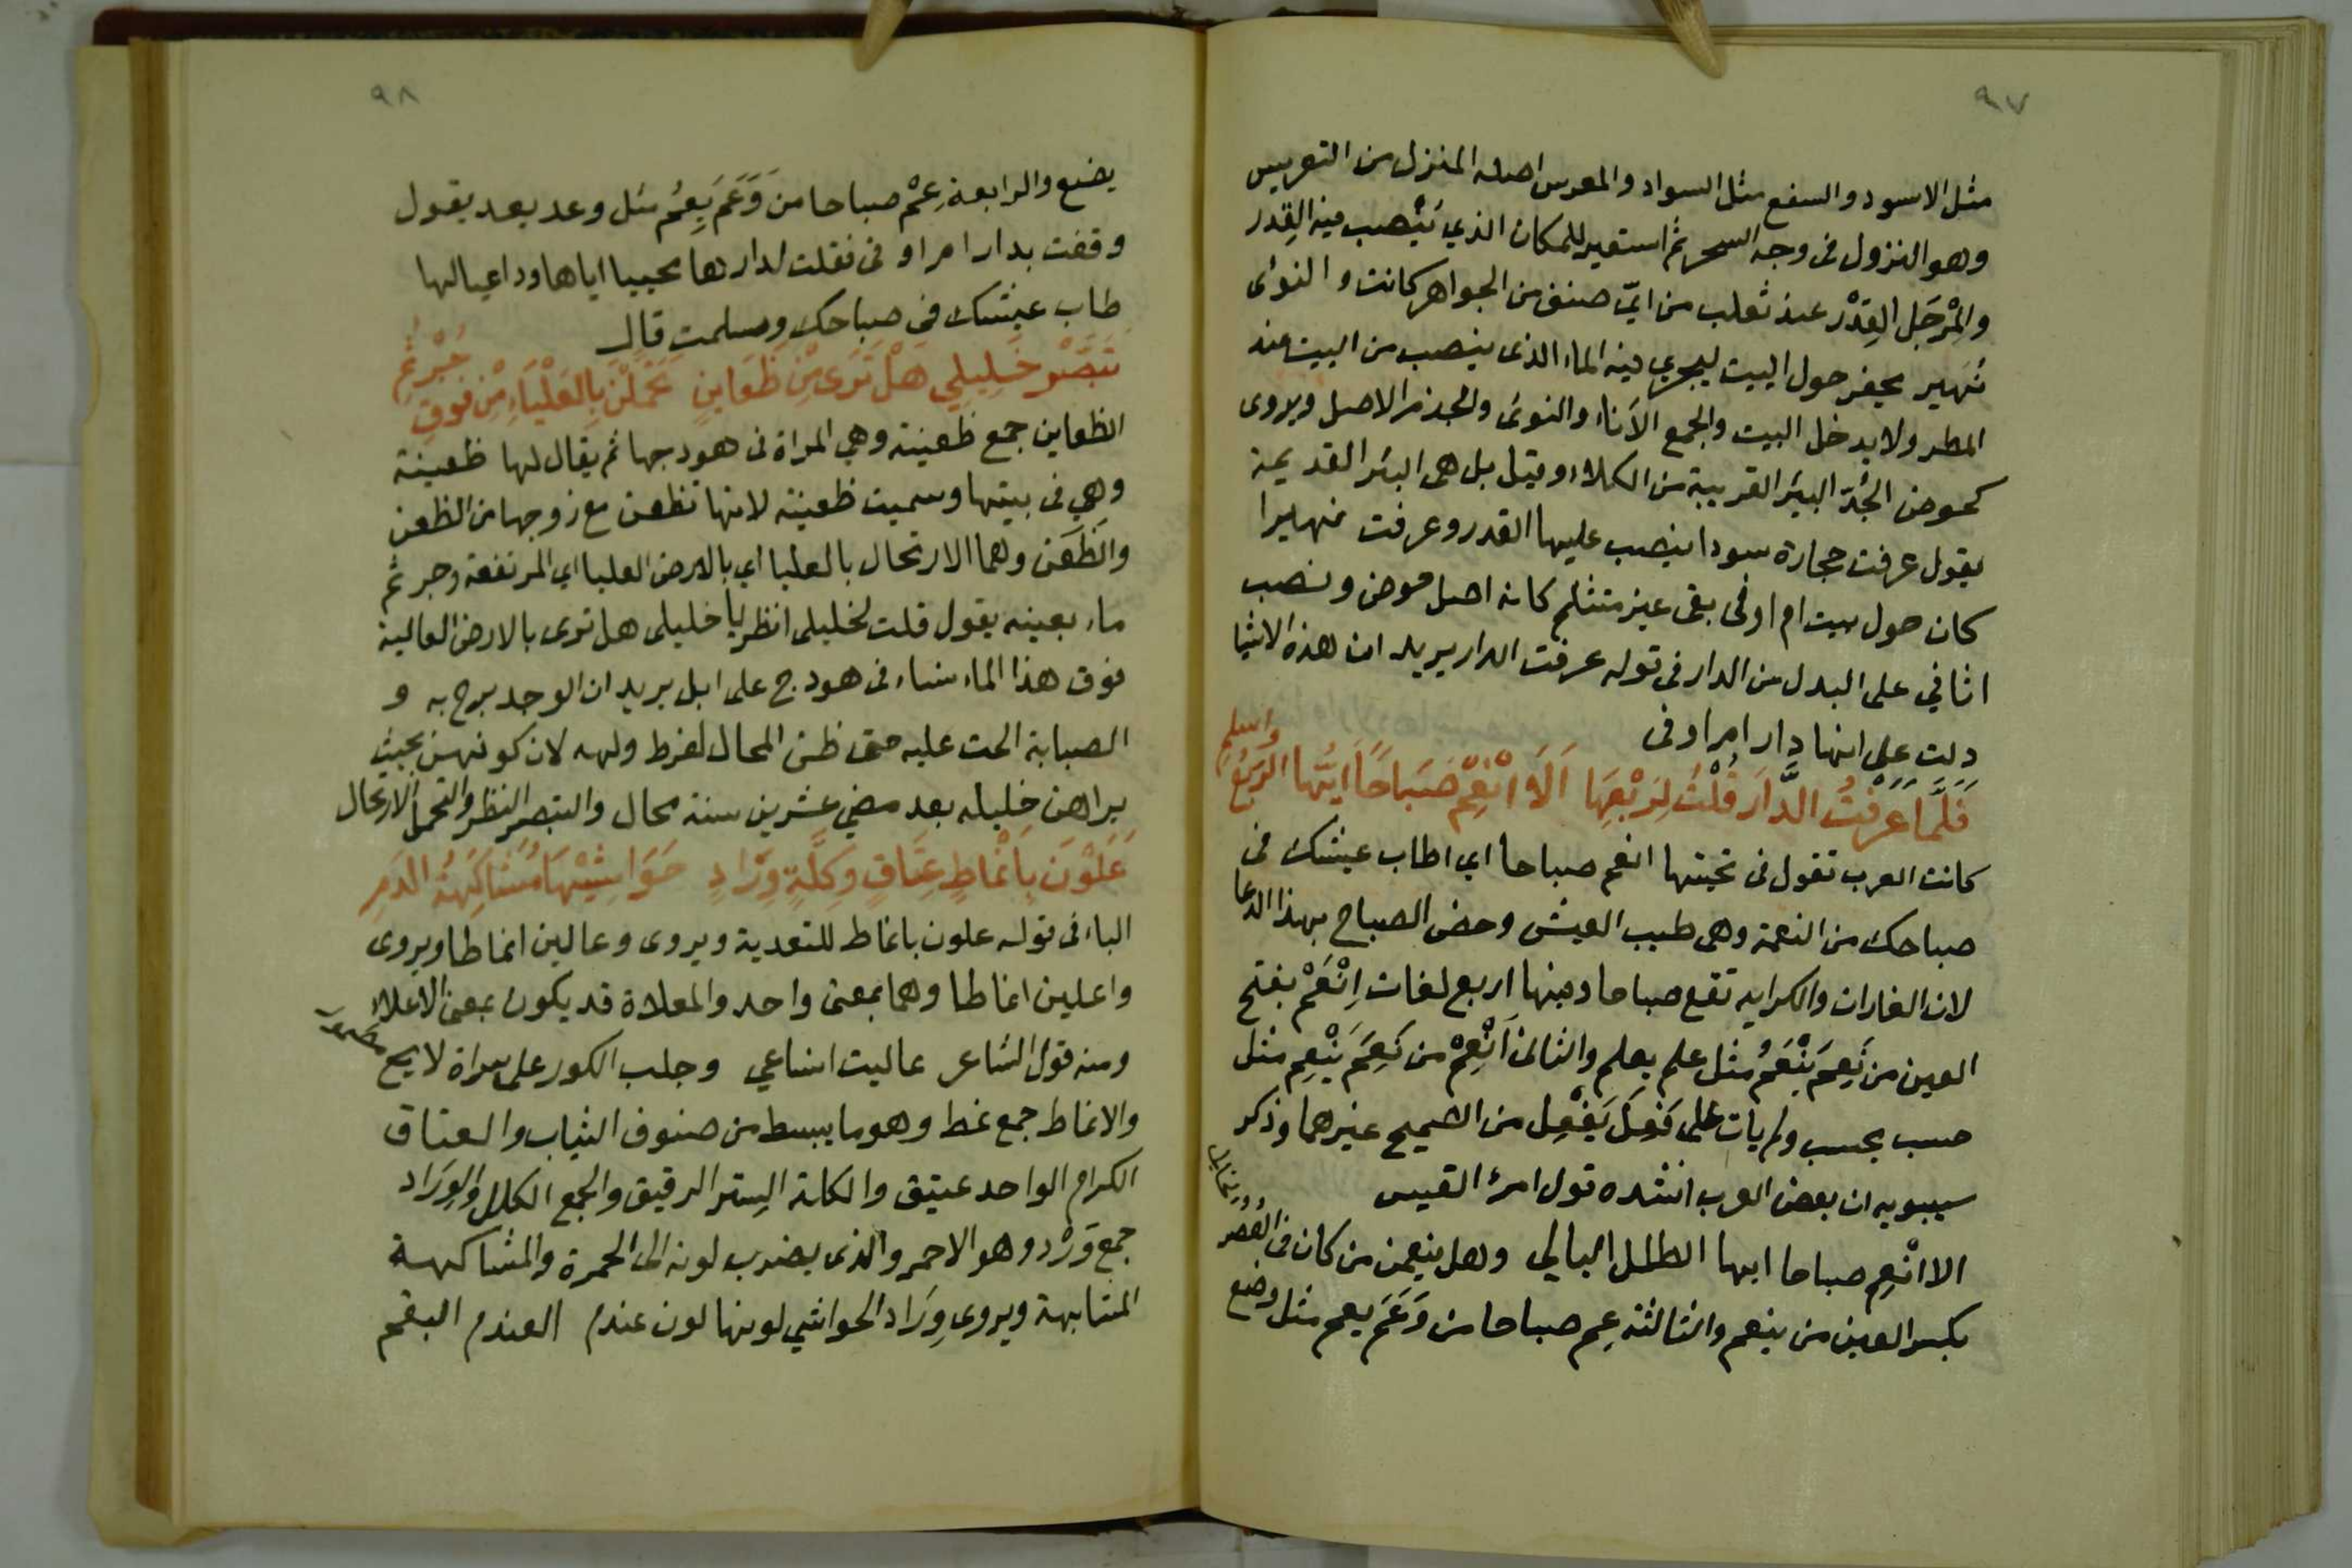 ٩٧
مثل الاسود والسفع مثل السواد والمعرس اصله المنزل من التعريس
وهو النزول فى وجه السحر ثم استعير للمكان الذي يُنْصب فيه القِدر
والمْرجَل القِدْر عند ثعلب من ايّ صنف من الجواهر كانت و النوئى
نُهير يحفر حول البيت ليجري فيه الماء الذى ينصب من البيت عند
المطر ولا يدخل البيت والجمع الآناء والنوئى والجذم الاصل ويروى
كحوض الجُدّ البئر القريبة من الكلاء وقيل بل هى البئر القديمة
يقول عرفت حجارة سودا ينصب عليها القدر وعرفت نهيرا
كان حول بيت ام اوفى بقى غير متثلم كانه اصل حوض ونصب
اثافي على البدل من الدار فى قوله عرفت الدار يريد ان هذه الاشيا
دلت على انها دار ام اوفى
فَلَمَّا عَرَفْتُ الدَّارَ قُلْتُ لِرَبْعِهَا اَلَا انْعِمْ صَبَاحًا اَيُّهَا الرَبْعُ واسلم
كانت العرب تقول فى تحيتها انعم صباحا اي اطاب عيشك فى
صباحك من النعمة وهى طيب العيش وخص الصباح بهذا الدعا
لان الغارات والكرايه تقع صباحا وفيها اربع لغات اِنْعَمْ بفتح
العين من نَعِمَ يَنْعَمُ مثل علم يعلم والثانى اَنْعِمْ من نَعِمَ يَنْعِم مثل
حسب يحسب ولم يات على فَعِلَ يَفْعِل من الصحيح غيرهما وذكر
سيبويه ان بعض العرب انشده قول امرئ القيس
الا انْعِم صباحا ايها الطلل البالي وهل ينعمن من كان فى العُصُر الخالي
بكسر العين من ينعم والثالثة عِم صباحا من وَعَمَ يعم مثل وضع
٩٨
يضع والرابعة عِمْ صباحا من وَعَمَ يَعِمُ مثل وعد يعد يقول
وقفت بدار ام اوفى فقلت لدارها محييا اياها وداعيا لها
طاب عيشك فى صباحك وسلمت قال
تَبَصَّرْ خَلِيلِي هَلْ تَرَى مِنْ ظَعَاينٍ تَحَمَّلْنَ بِالْعَلْيَاءِ مِنْ فَوْقِ جُرْثُمِ
الظعاين جمع ظعينة وهي المراة فى هودجها ثم يقال لها ظعينة
وهي فى بيتها وسميت ظعينة لانها تظعن مع زوجها من الظعن
والظَعَن وهما الارتحال بالعليا اي بالارض العليا اي المرتفعة وجرثم
ماء بعينه يقول قلت لخليلى انظر يا خليلى هل ترى بالارض العالية
فوق هذا الماء نساء فى هودج على ابل يريد ان الوجد برح به و
الصبابة الحت عليه حتى ظن المحال لفرط ولهه لان كونهن بحيث
يراهن خليله بعد مضي عشرين سنة محال والتبصر النظر والتحمل الارتحال
عَلَوْنَ بِاَنْمَاطٍ عِتَاقٍ وَكِلَّةٍ وِرَادٍ حَوَاشِيْهَا مُشَاكِهَةُ الدَمِ
الباء فى قوله علون بانماط للتعدية ويروى وعالين انماطا ويروى
واعلين انماطا وهما بمعنى واحد والمعلاة قد يكون بمعنى الاعلاء
ومنه قول الشاعر عاليت انساعي وجلب الكور على سراة لايح ممطور
والانماط جمع نمط وهو ما يبسط من صنوف الثياب والعتاق
الكرام الواحد عتيق والكلة السِتر الرقيق والجمع الكلل والوِرَاد
جمع وَرْد وهو الاحمر والذى يضرب لونه الى الحمرة والمشاكهة
المشابهة ويروى وِرَاد الحواشي لونها لون عندم العندم البقم